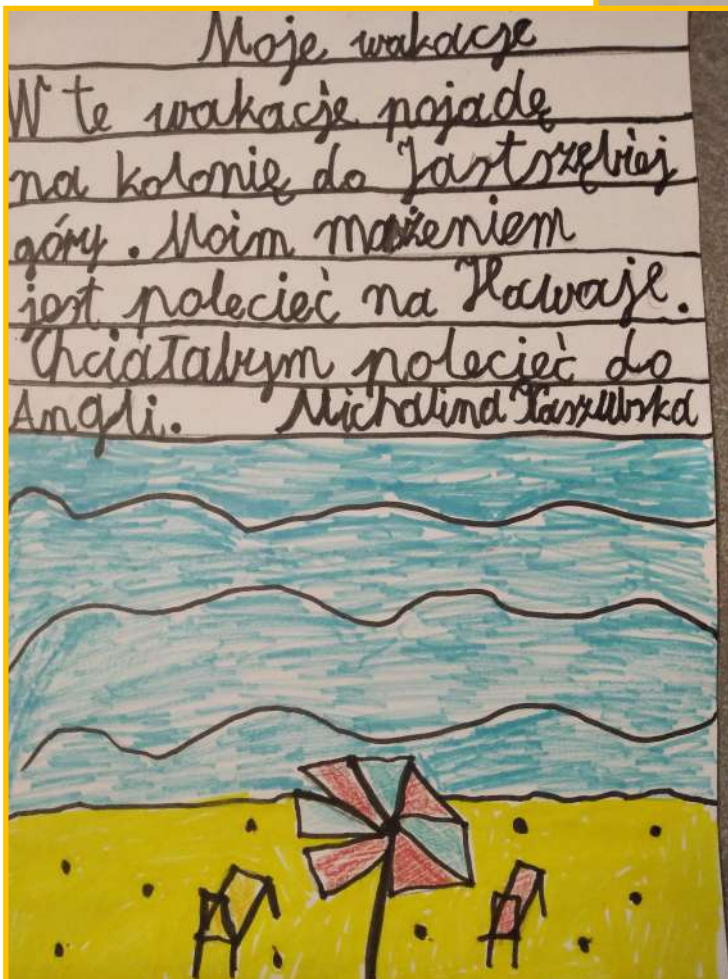 Moje wakacje
W te wakacje pojadę
na kolonię do Jastszębiej
góry. Moim mażeniem
jest polecieć na Hawaje.
Chciałabym polecieć do
Angli. Michalina Kaszubska